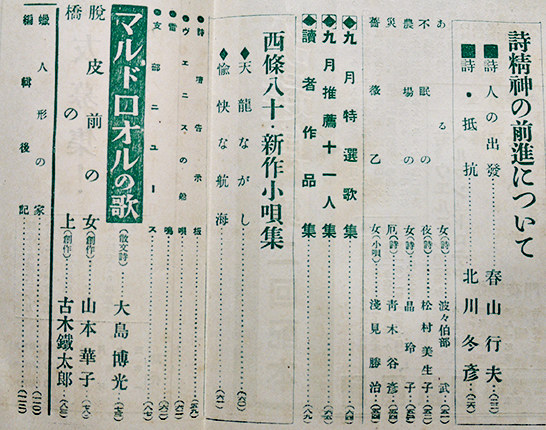 詩精神の前進について
■詩人の出發……春山行夫…(三)
■詩・抵抗……北川冬彦…(六)
あるの女(詩)……波々伯部武…(三)
不眠の夜(詩)……松村美生子…(三)
農場の女(詩)……晶玲子…(四)
災厄(詩)……青木谷彦…(四)
薔薇乙女(小唄)……淺見勝治…(四)
◆九月特選歌集……(六四)
◆九月推薦十一人集……(八四)
◆讀者作品集……(八九)
西條八十・新作小唄集
◆天龍ながし……(六〇)
◆愉快な航海……(六二)
詩壇告示板……(五九)
ヴエニスの船唄……
雷鳴……
支部ニュース……(八七)
マルドロオルの歌(散文詩)……大島博光…(七四)
脱皮前の女(創作)……山本華子…(七八)
橋の上(創作)……古木鐵太郎…(八三)
蠟人形の家……(一一〇)
編輯後記……(一一二)